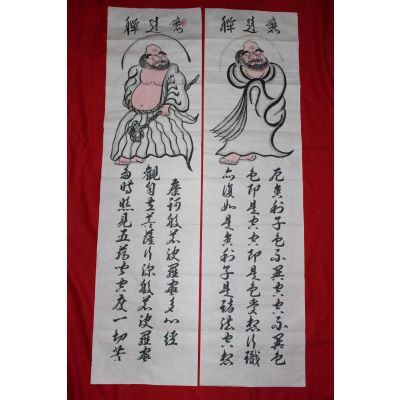 摩訶般若波羅蜜多心經
觀自在菩薩行深般若波羅蜜
多時照見五蘊皆空度一切苦
厄舍利子色不異空空不異色
色即是空空即是色受想行識
亦復如是舍利子是諸法空相